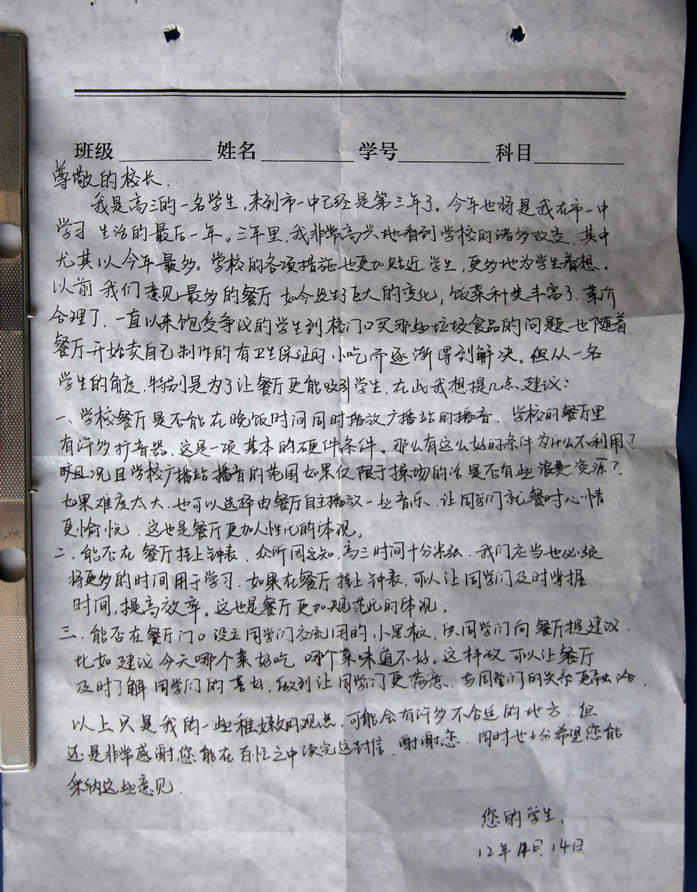 班级 姓名 学号 科目
尊敬的校长.
我是高三的一名学生,来到市一中已经是第三年了。今年也将是我在市一中
学习生活的最后一年。三年里,我非常高兴地看到学校的诸多改变,其中
尤其以今年最多。学校的各项措施也更加贴近学生,更多地为学生着想。
以前我们意见最多的餐厅如今发生了巨大的变化,饭菜种类丰富了,菜价
合理了,一直以来饱受争议的学生到校门口买那些垃圾食品的问题也随着
餐厅开始卖自己制作的有卫生保证的小吃而逐渐得到解决。但从一名
学生的角度,特别是为了让餐厅更能吸引学生,在此我想提几点建议:
一、学校餐厅是否能在晚饭时间同时播放广播站的播音,学校的餐厅里
有许多扩音器,这是一项基本的硬件条件。那么有这么好的条件为什么不利用?
况且学校广播站播音的范围如果仅限于操场的话是否有些浪费资源?
如果难度太大,也可以选择由餐厅自主播放一些音乐,让同学们就餐时心情
更愉悦,这也是餐厅更加人性化的体现。
二、能否在餐厅挂上钟表,众所周知,高三时间十分紧张,我们应当也必须
将更多的时间用于学习,如果在餐厅挂上钟表,可以让同学们及时掌握
时间,提高效率。这也是餐厅更加规范化的体现。
三、能否在餐厅门口设立同学们交流用的小黑板,供同学们向餐厅提建议.
比如建议今天哪个菜好吃,哪个菜味道不好。这样就可以让餐厅
及时了解同学们的喜好,做到让同学们更满意,与同学们的关系更融洽.
以上只是我的一些稚嫩的观点,可能会有许多不合适的地方,但
还是非常感谢您能在百忙之中读完这封信,谢谢您,同时也十分希望您能
采纳这些意见.
您的学生,
12年 月14日